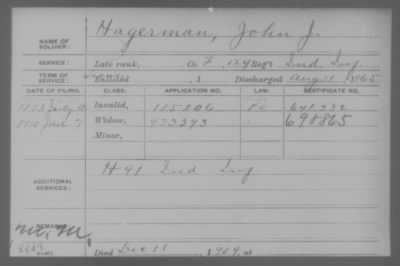 NAME OF SOLDIER: Hagerman, John J.
SERVICE: Late rank, Co. F, 129 Reg't Ind. Inf.
TERM OF SERVICE: Enlisted , 1 Discharged Aug 31, 1865
DATE OF FILING. CLASS. APPLICATION NO. LAW. CERTIFICATE NO.
1873 July Invalid, 185206
1910 Jan 7 Widow, 933393 698865
Minor,
ADDITIONAL SERVICES: H 91 Ind Inf.
REMARKS:
Died Dec 11, 1909, at